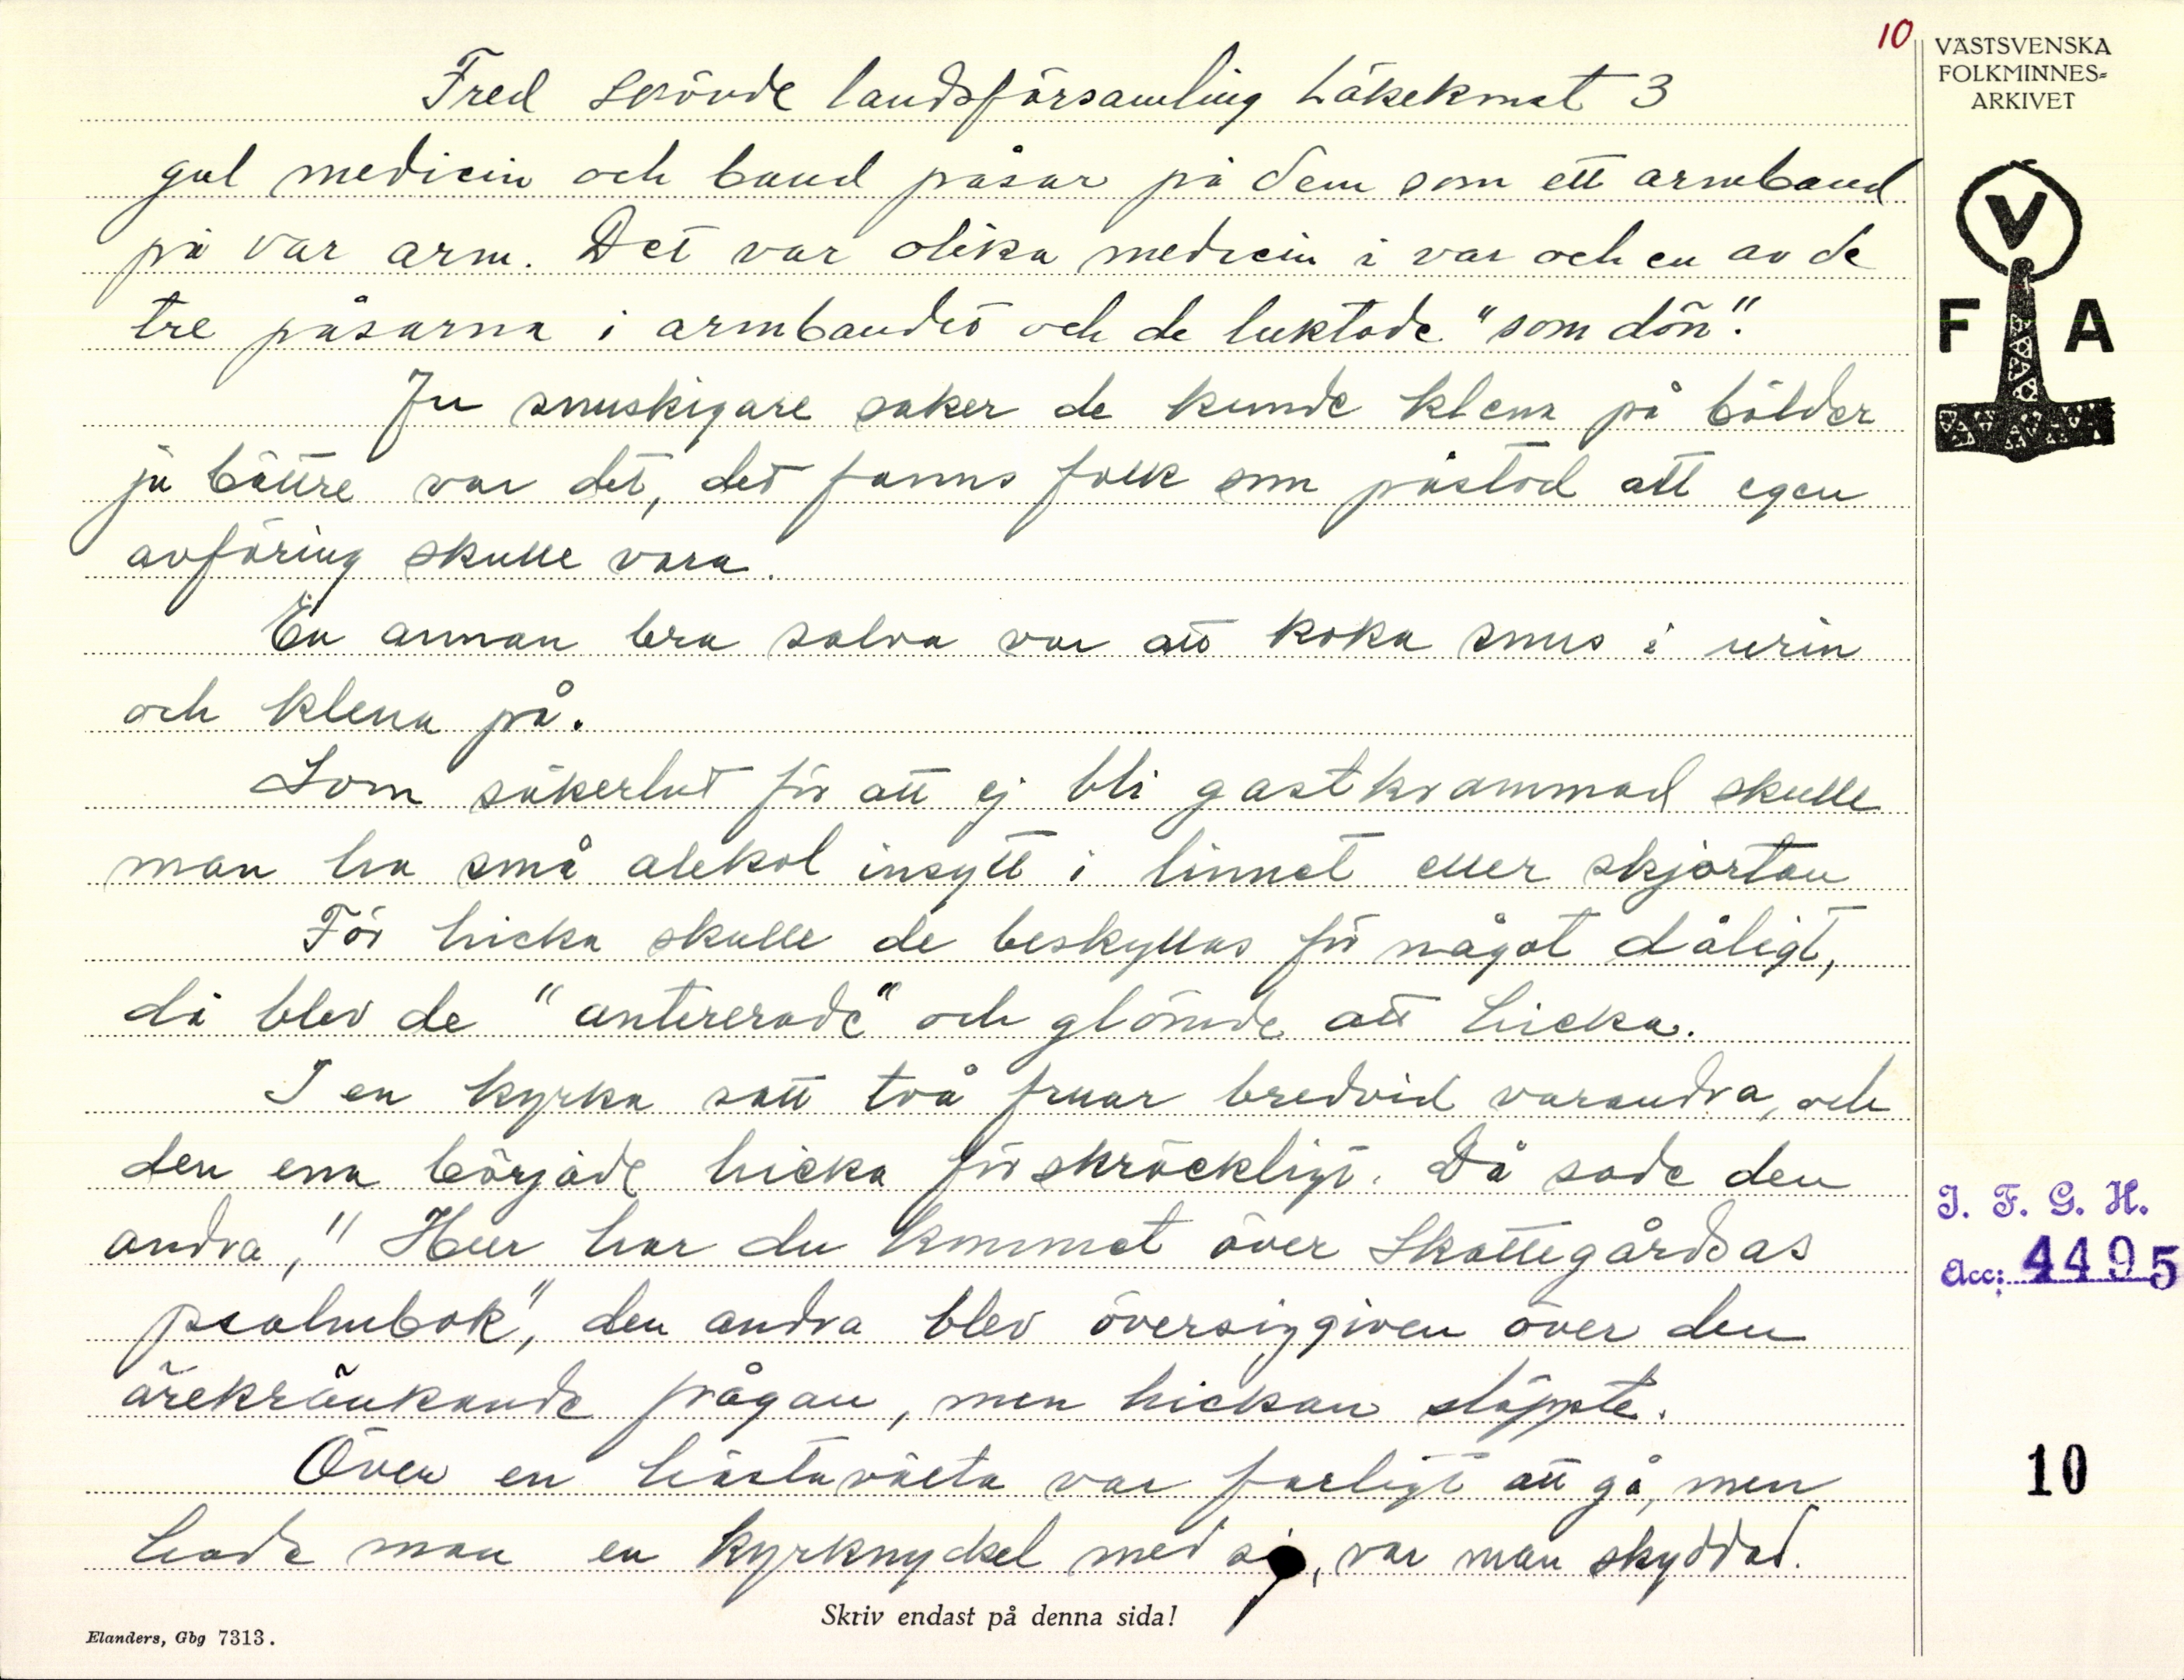 10
VÄSTSVENSKA
FOLKMINNES=
ARKIVET
Fred Skövde landsförsamling Läkekonst 3
gul medicin och band påsar på dem som ett armband
på var arm. Det var olika medicin i var och en av de
tre påsarna i armbandet och de luktade "som dön".
V
F A
Ju snuskigare saker de kunde klena på bölder
ju bättre var det, det fanns folk som påstod att egen
avföring skulle vara.
En annan bra salva var att koka snus i urin
och klena på.
Som säkerhet för att ej bli gastkrammad skulle
man ha små alekol insytt i linnet eller skjortan
För hicka skulle de beskyllas för något dåligt,
då blev de "antererade" och glömde att hicka.
I en kyrka satt två fruar bredvid varandra, och
den ena började hicka förskräckligt. Då sade den
andra, "Hur har du kommet över Skattegårdsas
psalmbok", den andra blev översiggiven över den
ärekränkande frågan, men hickan släppte.
J. F. G. H.
Acc: 4495
Över en hästavälta var farligt att gå, men
hade man en kyrknyckel med sig, var man skyddad.
10
Skriv endast på denna sida!
Elanders, Gbg 7313.